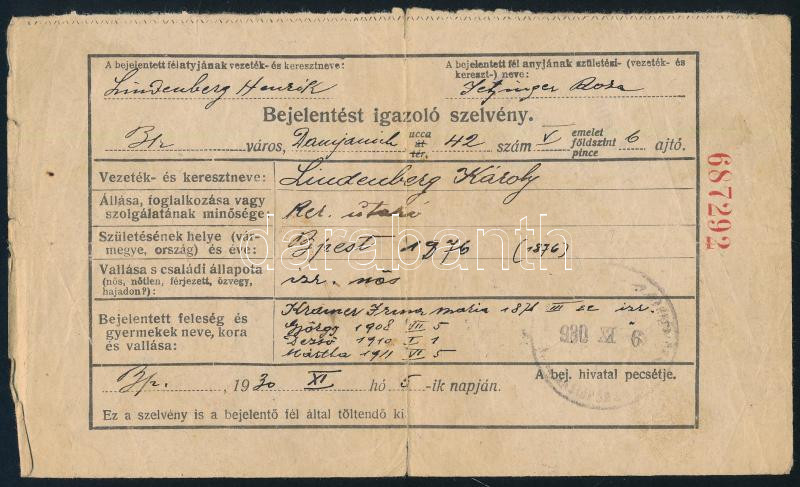 A bejelentett fél atyjának vezeték- és keresztneve:
Lindenberg Henrik
A bejelentett fél anyjának születési- (vezeték- és
kereszt-) neve:
Rosa
Bejelentést igazoló szelvény.
Bp. város, Damjanich ucca út tér. 42 szám V emelet földszint pince 6 ajtó.
Vezeték- és keresztneve: Lindenberg Károly
Állása, foglalkozása vagy
szolgálatának minősége: Ker. utazó
Születésének helye (vár-
megye, ország) és éve: Bpest 1976 (1876)
Vallása s családi állapota
(nős, nőtlen, férjezett, özvegy,
hajadon?): izr. nős
Bejelentett feleség és
gyermekek neve, kora
és vallása:
Krámer Irma Mária 187 III izr.
György 1908 VII 5
Dezső 1910 I 1
Mártha 1911 VI 5
Bp. 1930 XI hó 5-ik napján.
A bej. hivatal pecsétje.
Ez a szelvény is a bejelentő fél által töltendő ki
687292
930 XI 6
darabanth